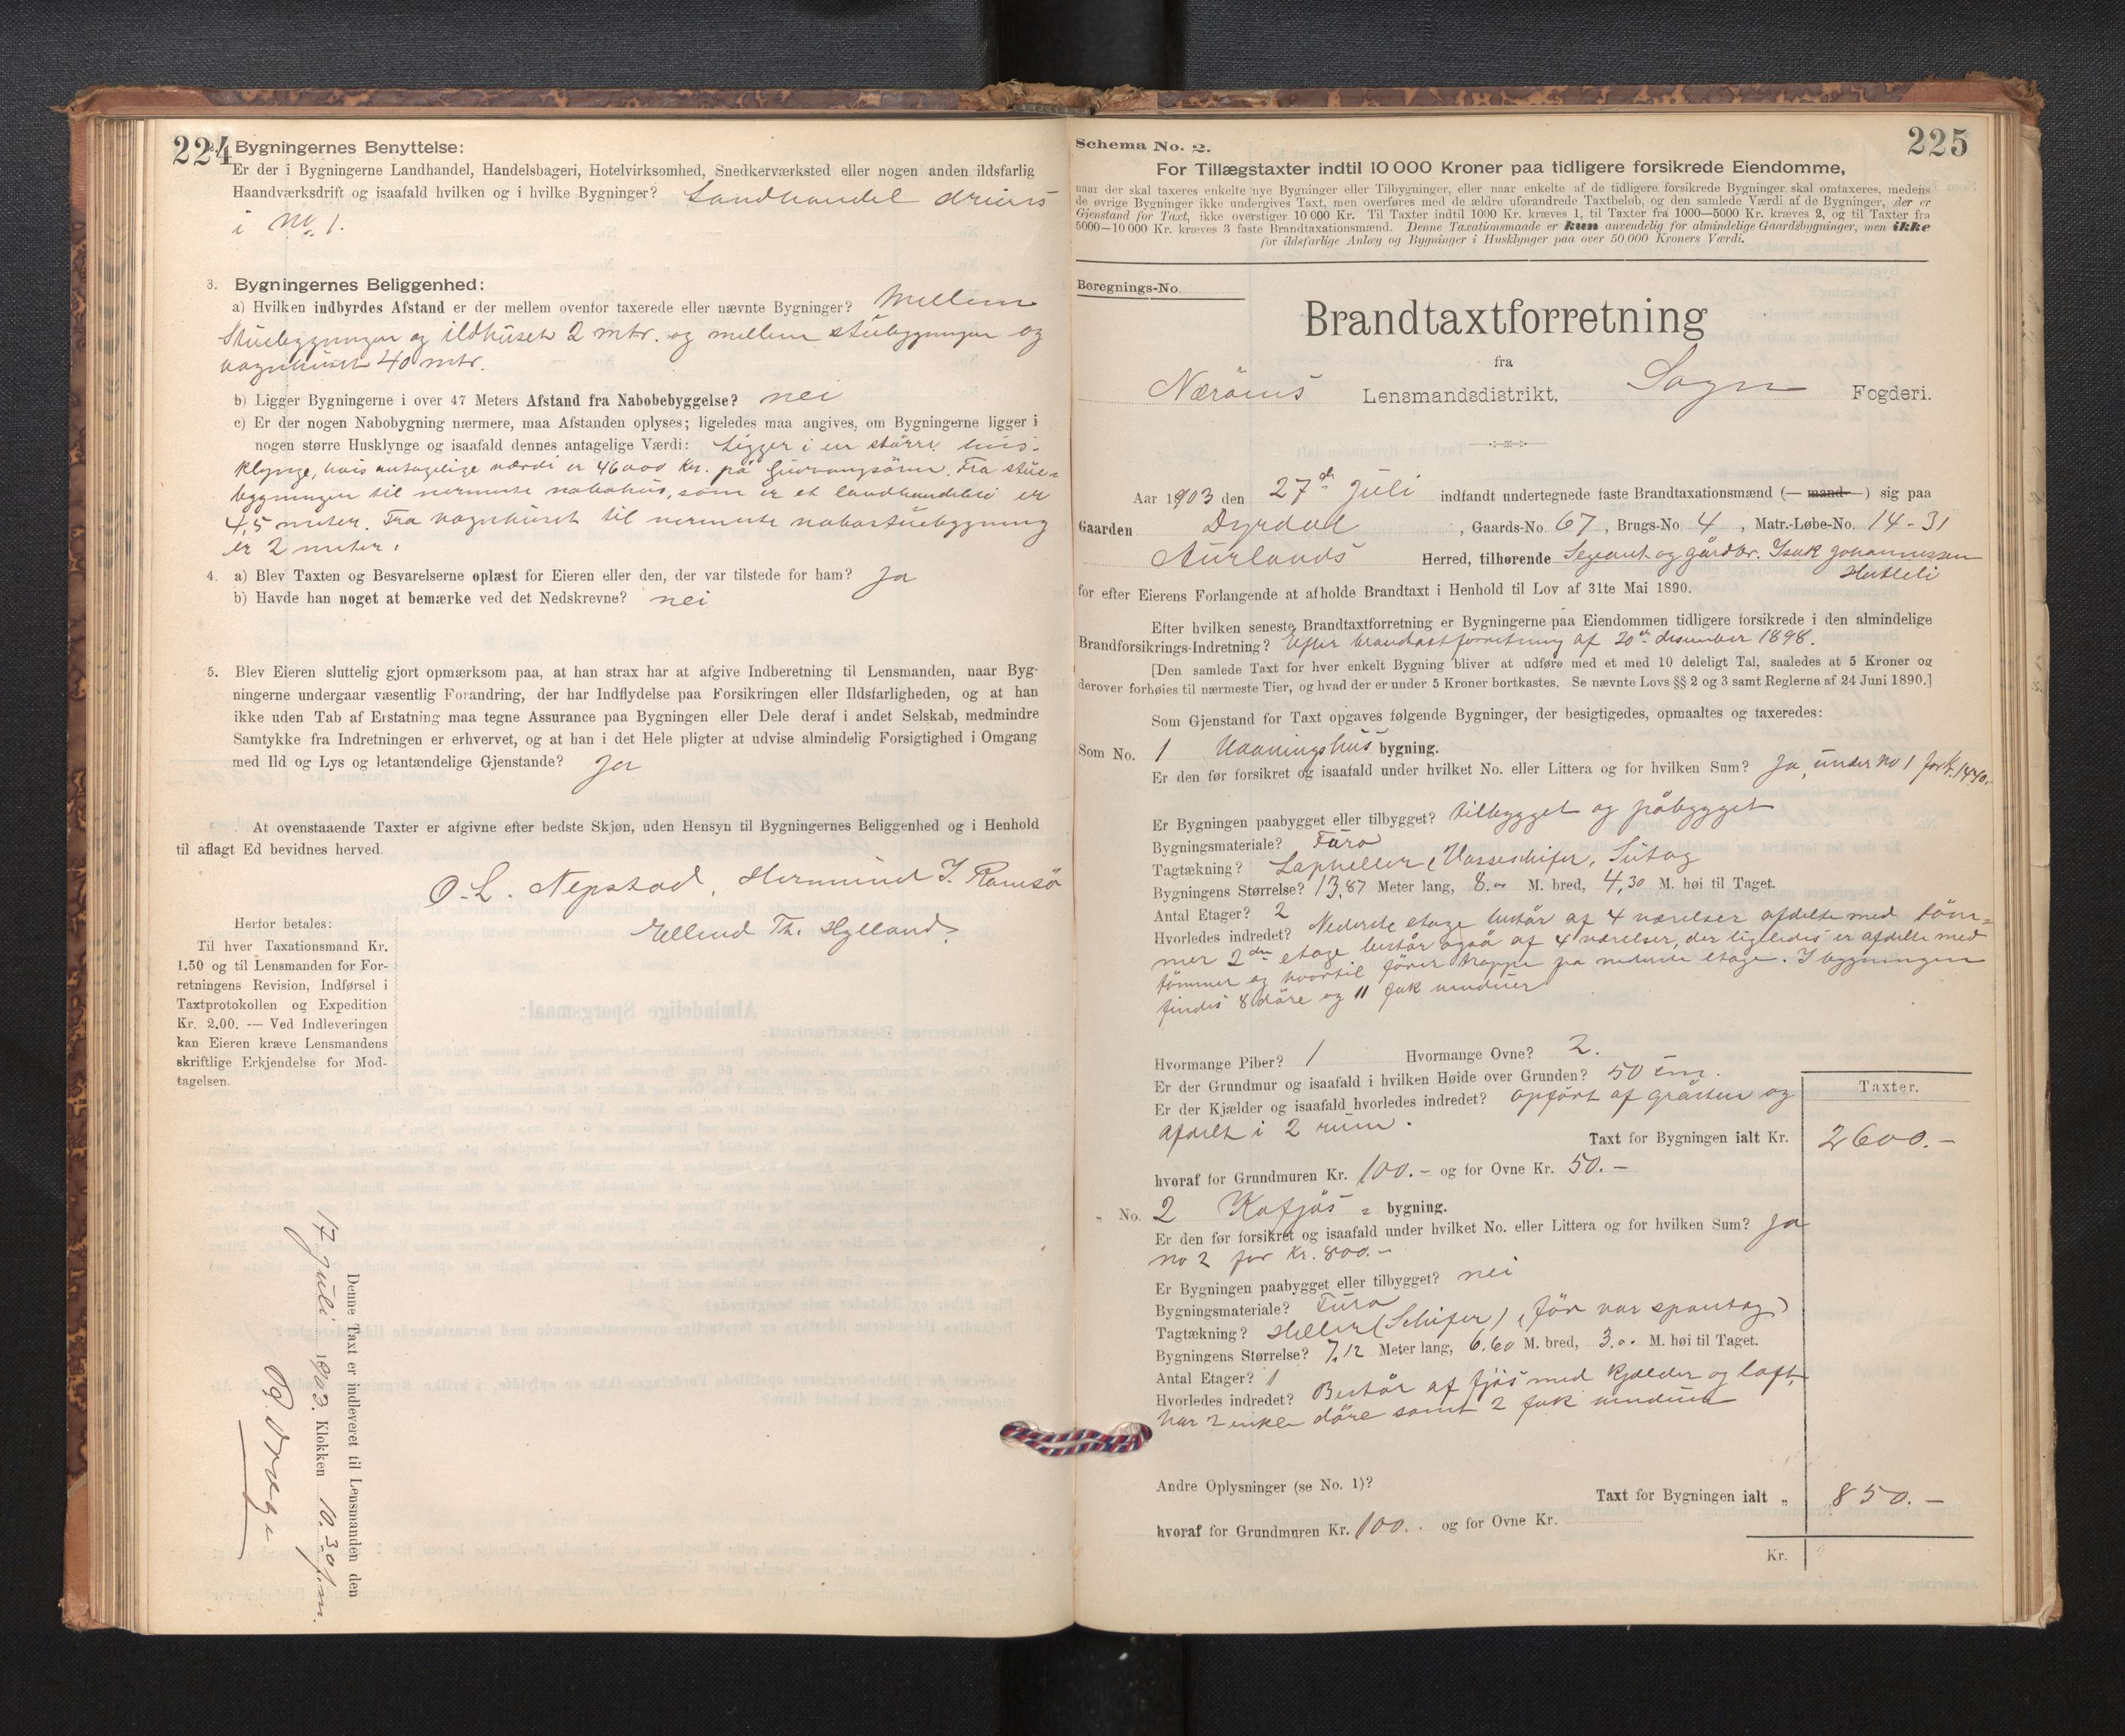 224
2. Bygningernes Benyttelse:
Er der i Bygningerne Landhandel, Handelsbageri, Hotelvirksomhed, Snedkerværksted eller nogen anden ildsfarlig
Haandværksdrift og isaafald hvilken og i hvilke Bygninger? Landhandel drives
i No. 1.
3. Bygningernes Beliggenhed:
a) Hvilken indbyrdes Afstand er der mellem ovenfor taxerede eller nævnte Bygninger? Mellem
stuebygningen og ildhuset 2 mtr. og mellem stuebygningen og
vognhuset 40 mtr.
b) Ligger Bygningerne i over 47 Meters Afstand fra Nabobebyggelse? nei
c) Er der nogen Nabobygning nærmere, maa Afstanden oplyses; ligeledes maa angives, om Bygningerne ligger i
nogen større Husklynge og isaafald dennes antagelige Værdi: Ligger i en större hus-
klynge, hvis antagelige værdi er 46000 kr. på Gudvangsören. Fra stue-
bygningen til nermeste nabohus, som er et landhandleri er
4,5 meter. Fra vognhuset til nermeste nabostuebygning
er 2 meter.
4. a) Blev Taxten og Besvarelserne oplæst for Eieren eller den, der var tilstede for ham? Ja
b) Havde han noget at bemærke ved det Nedskrevne? nei
5. Blev Eieren sluttelig gjort opmærksom paa, at han strax har at afgive Indberetning til Lensmanden, naar Byg-
ningerne undergaar væsentlig Forandring, der har Indflydelse paa Forsikringen eller Ildsfarligheden, og at han
ikke uden Tab af Erstatning maa tegne Assurance paa Bygningen eller Dele deraf i andet Selskab, medmindre
Samtykke fra Indretningen er erhvervet, og at han i det Hele pligter at udvise almindelig Forsigtighed i Omgang
med Ild og Lys og letantændelige Gjenstande? Ja
At ovenstaaende Taxter er afgivne efter bedste Skjøn, uden Hensyn til Bygningernes Beliggenhed og i Henhold
til aflagt Ed bevidnes herved.
O. L. Nepstad, Hermund I. Ramsö
Ellend Th. Hylland.
Herfor betales:
Til hver Taxationsmand Kr.
1.50 og til Lensmanden for For-
retningens Revision, Indførsel i
Taxtprotokollen og Expedition
Kr. 2.00. — Ved Indleveringen
kan Eieren kræve Lensmandens
skriftlige Erkjendelse for Mod-
tagelsen.
Denne Taxt er indleveret til Lensmanden den
17 Juli 1903. Klokken 10.30 f.m.
225
Schema No. 2.
For Tillægstaxter indtil 10 000 Kroner paa tidligere forsikrede Eiendomme,
naar der skal taxeres enkelte nye Bygninger eller Tilbygninger, eller naar enkelte af de tidligere forsikrede Bygninger skal omtaxeres, medens
de øvrige Bygninger ikke undergives Taxt, men overføres med de ældre uforandrede Taxtbeløb, og den samlede Værdi af de Bygninger, der er
Gjenstand for Taxt, ikke overstiger 10 000 Kr. Til Taxter indtil 1000 Kr. kræves 1, til Taxter fra 1000—5000 Kr. kræves 2, og til Taxter fra
5000—10 000 Kr. kræves 3 faste Brandtaxationsmænd. Denne Taxationsmaade er kun anvendelig for almindelige Gaardsbygninger, men ikke
for ildsfarlige Anlæg og Bygninger i Husklynger paa over 50 000 Kroners Værdi.
Beregnings-No.
Brandtaxtforretning
fra
Neröens Lensmandsdistrikt, Sogn Fogderi.
Aar 1903 den 27de Juli indfandt undertegnede faste Brandtaxationsmænd (— mand —) sig paa
Gaarden Dyrdal, Gaards-No. 67, Brugs-No. 4, Matr.-Løbe-No. 14-31
Aurlands Herred, tilhørende Sejeant og gårdbr. Isak Johannessen
Hutleli
for efter Eierens Forlangende at afholde Brandtaxt i Henhold til Lov af 31te Mai 1890.
Efter hvilken seneste Brandtaxtforretning er Bygningerne paa Eiendommen tidligere forsikrede i den almindelige
Brandforsikrings-Indretning? Efter brandtaxtforretning af 20de desember 1898.
[Den samlede Taxt for hver enkelt Bygning bliver at udføre med et med 10 deleligt Tal, saaledes at 5 Kroner og
derover forhøies til nærmeste Tier, og hvad der er under 5 Kroner bortkastes. Se nævnte Lovs §§ 2 og 3 samt Reglerne af 24 Juni 1890.]
Som Gjenstand for Taxt opgaves følgende Bygninger, der besigtigedes, opmaaltes og taxeredes:
Som No. 1 Vaaningshus bygning.
Er den før forsikret og isaafald under hvilket No. eller Littera og for hvilken Sum? Ja, under no 1 for k. 1440.-
Er Bygningen paabygget eller tilbygget? tilbygget og påbygget
Bygningsmateriale? Furo
Tagtækning? Lapheller, Vosseschifer, Sutag
Bygningens Størrelse? 13,87 Meter lang, 8.00 M. bred, 4,30 M. høi til Taget.
Antal Etager? 2
Hvorledes indredet? Nederste etage består af 4 værelser afdelte med töm-
mer 2den etage består også af 4 værelser, der ligeledes er afdelte med
tömmer og hvortil förer trappe på nederste etage. I bygningen
findes 8 döre og 11 fak vinduer
Hvormange Piber? 1 Hvormange Ovne? 2.
Er der Grundmur og isaafald i hvilken Høide over Grunden? 50 cm.
Er der Kjælder og isaafald hvorledes indredet? opfört af gråsten og
afdelt i 2 rum.
Taxter.
Taxt for Bygningen ialt Kr. 2600.—
hvoraf for Grundmuren Kr. 100.— og for Ovne Kr. 50.—
" No. 2 Kofjös- bygning.
Er den før forsikret og isaafald under hvilket No. eller Littera og for hvilken Sum? Ja
no 2 for kr. 800.—
Er Bygningen paabygget eller tilbygget? nei
Bygningsmateriale? Furo
Tagtækning? Heller (Schifer), (för var spontag)
Bygningens Størrelse? 7,12 Meter lang, 6,60 M. bred, 3.00 M. høi til Taget.
Antal Etager? 1
Hvorledes indredet? Består af fjös med kjælder og loft,
har 2 enkle döre samt 2 fak vinduer
Andre Oplysninger (se No. 1)?
Taxt for Bygningen ialt „ 850.—
hvoraf for Grundmuren Kr. 100.. og for Ovne Kr.
Kr.